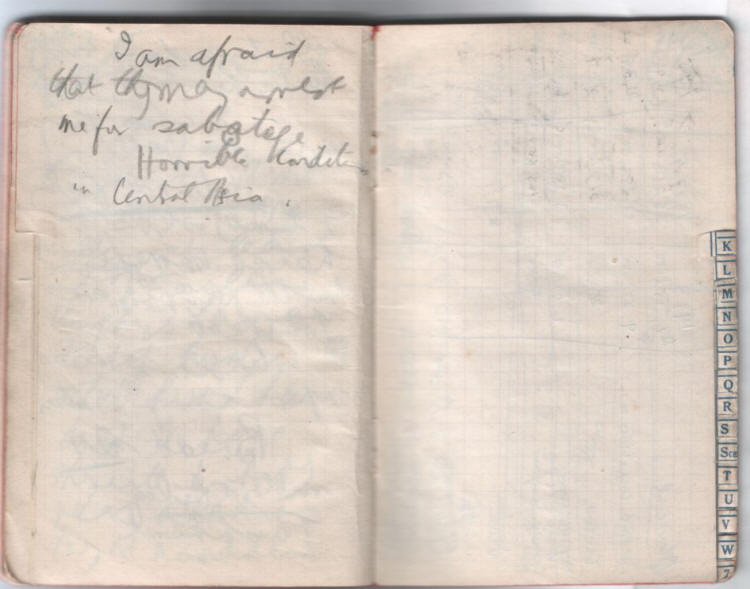 I am afraid
that they may arrest
me for sabotage
Horrible conditions
in Central Asia.
K
L
M
N
O
P
Q
R
S
Sch
T
U
V
W
Z